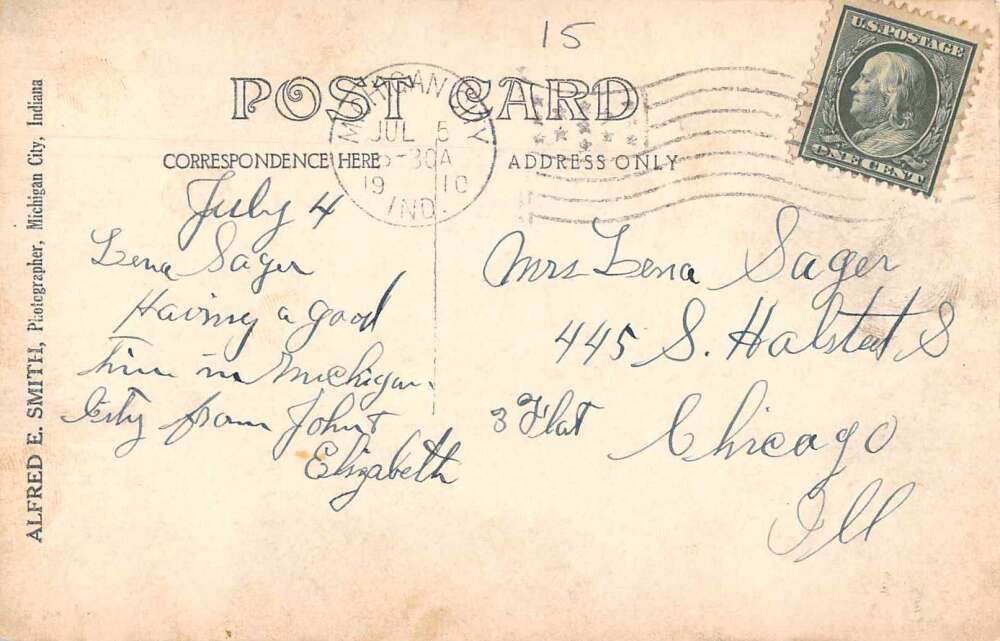 15
U.S. POSTAGE
ONE CENT
POST CARD
MICHIGAN CITY
JUL 5
-30A
1910
IND.
CORRESPONDENCE HERE
ADDRESS ONLY
ALFRED E. SMITH, Photographer, Michigan City, Indiana
July 4
Lena Sager
Having a good
time in Michigan
City from John &
Elizabeth
Mrs Lena Sager
445 S. Halsted S
3 Flat
Chicago
Ill